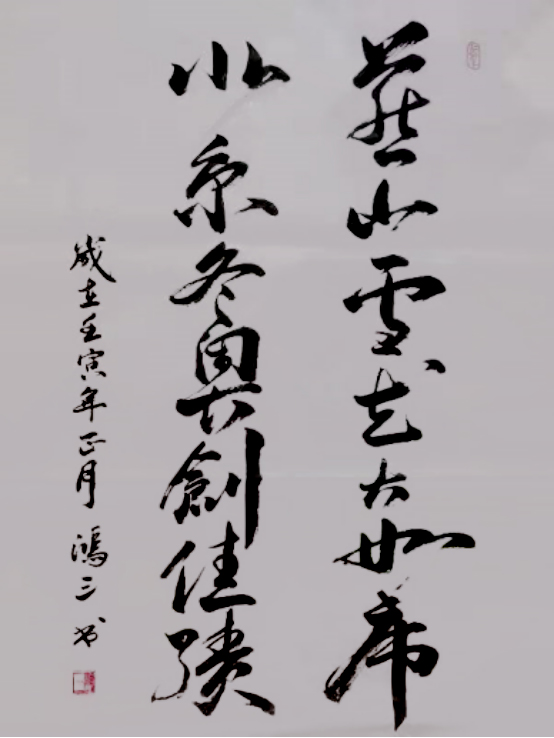 燕山雪花大如席
北京冬奥創佳績
歲在壬寅年正月 鴻三书